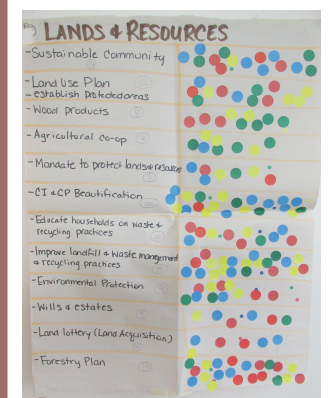 LANDS & RESOURCES
- Sustainable Community
- Land Use Plan
- establish protected areas
- Wood products
- Agricultural Co-op
- Mandate to protect lands & resources
- CI & CP Beautification
- Educate households on waste &
recycling practices
- Improve landfill & waste management
& recycling practices
- Environmental Protection
- Wills & estates
- Land lottery (Land Acquisition)
- Forestry Plan